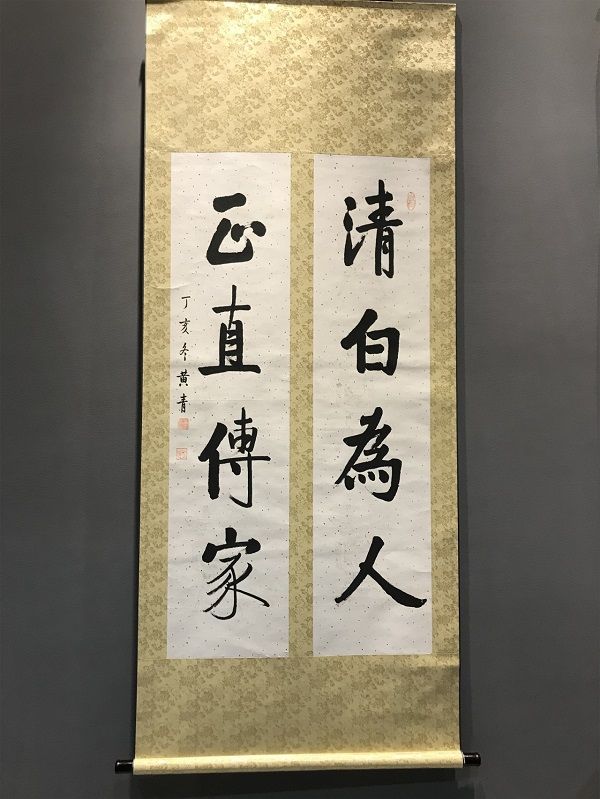 清白為人
正直傳家
丁亥冬黄青